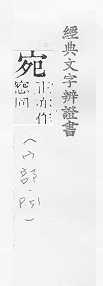 經典文字辨證書
宛
正亦作
惌同
(宀部, P51)